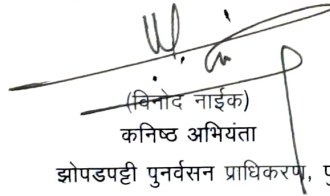 (विनोद नाईक)
कनिष्ठ अभियंता
झोपडपट्टी पुनर्वसन प्राधिकरण,